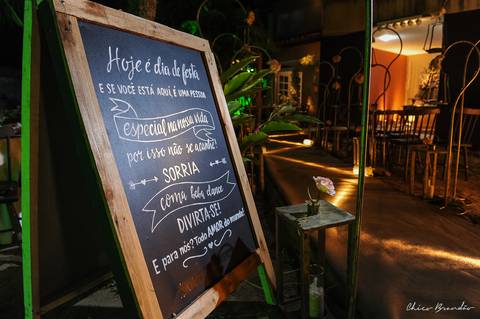 Hoje é dia de festa
E SE VOCÊ ESTÁ AQUI, É UMA PESSOA
especial na nossa vida
por isso não se acanhe!
SORRIA
coma beba dance
DIVIRTA-SE!
E para nós? Todo AMOR do mundo!
Chico Brandão